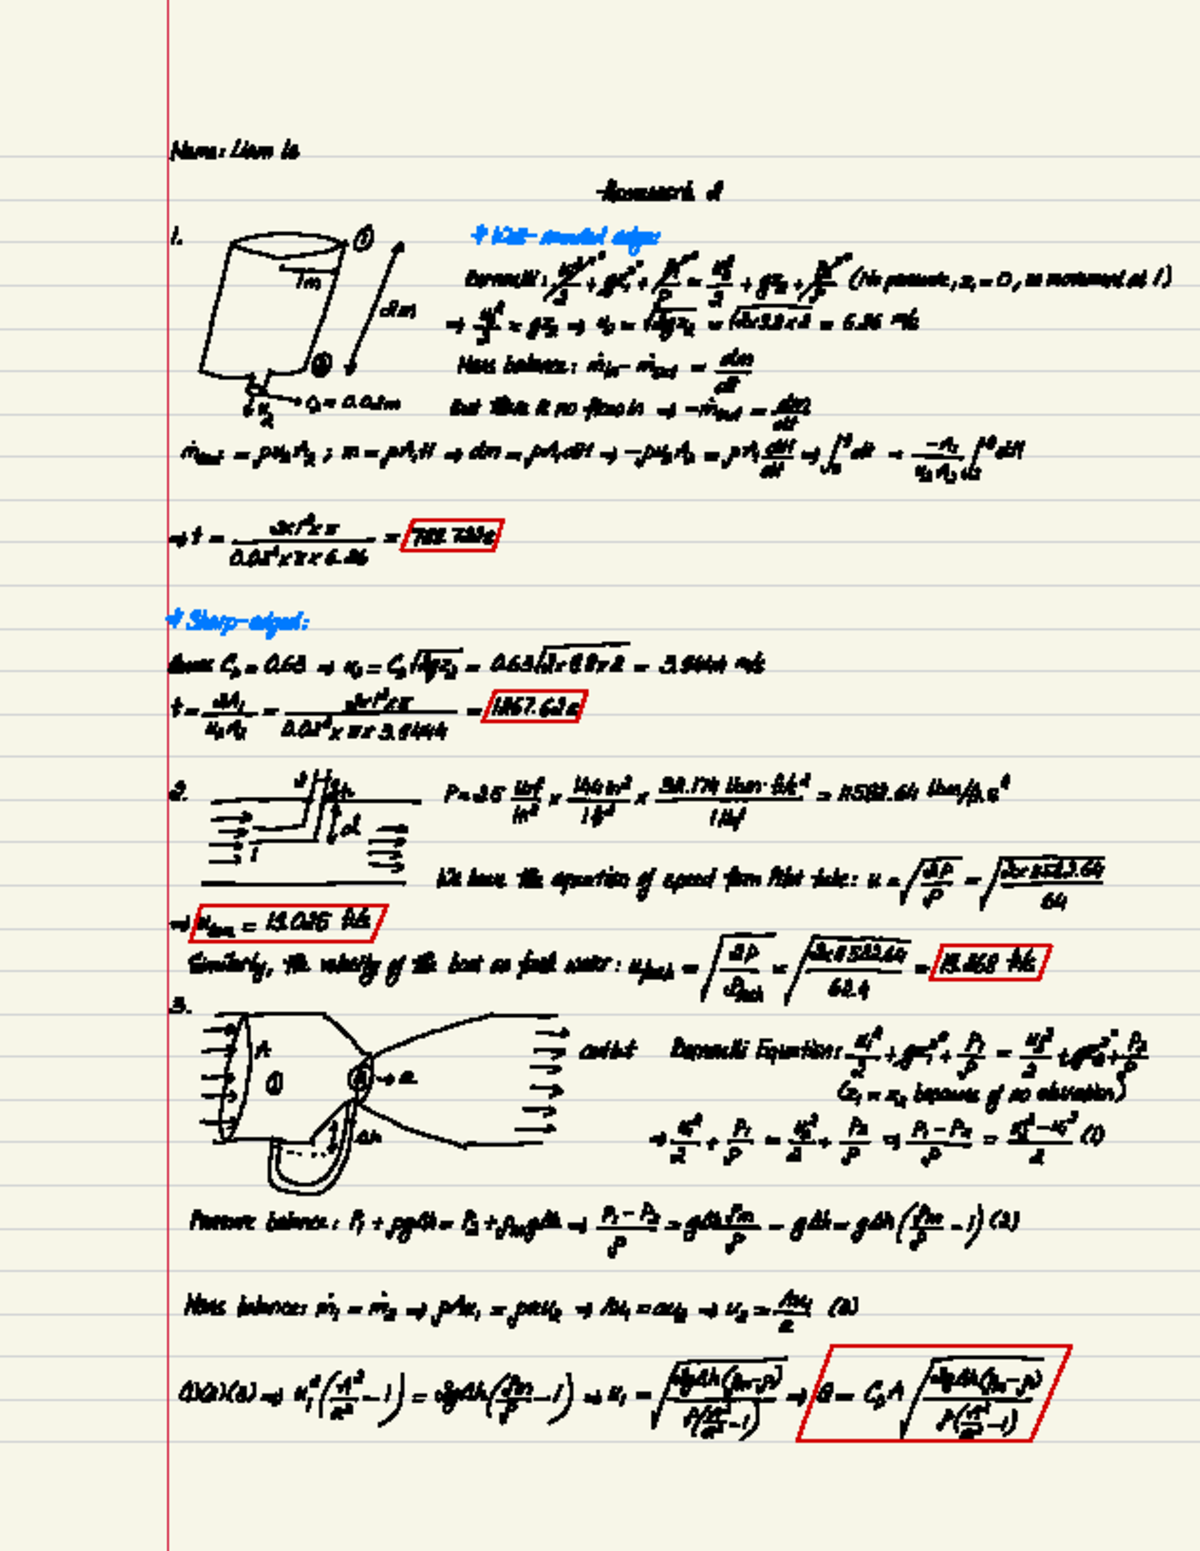 Name: Liam le
Homework 2
1.
①
* Well-rounded edge:
1m
2m
Bernoulli: u₁²/2 + gz₁ + P₁/ρ = u₂²/2 + gz₂ + P₂/ρ (No pressure, z₁ = 0, no movement at 1)
⇒ u₂²/2 = gz₂ ⇒ u₂ = √(2gz₂) = √(2x9.8x2) = 6.26 m/s
②
Mass balance: ṁin - ṁout = dm/dt
u₂
= 0.02m
But there is no flow in ⇒ -ṁout = dm/dt
ṁout = ρu₂A₂ ; m = ρA₁H ⇒ dm = ρA₁dH ⇒ -ρu₂A₂ = ρA₁ dH/dt ⇒ ∫ dt = -A₁/(u₂A₂) ∫ dH
⇒ t = (2x1²xπ)/(0.02²xπx6.26) =
* Sharp-edged:
C₀ = 0.63 ⇒ u₂ = C₀√(2gz₂) = 0.63√(2x9.8x2) = 3.9444 m/s
t = 2A₁/(u₂A₂) = (2x1²xπ)/(0.02²xπx3.9444) = 1267.62s
2.
h
d
P = 2.5 lbf/in² x 144in²/1ft² x 32.174 lbm·ft/s²/1lbf = 11582.64 lbm/ft·s²
We have the equation of speed from Pitot tube: u = √(2P/ρ) = √(2x11582.64/64)
⇒ = 19.025 ft/s
Similarly, the velocity of the boat on fresh water: ufresh = √(2P/ρfresh) = √(2x11582.64/62.4) = 19.268 ft/s
3.
A
①
②
→ a
Δh
outlet
Bernoulli Equation: u₁²/2 + gz₁ + P₁/ρ = u₂²/2 + gz₂ + P₂/ρ
(z₁ = z₂ because of no elevation)
⇒ u₁²/2 + P₁/ρ = u₂²/2 + P₂/ρ ⇒ (P₁-P₂)/ρ = (u₂²-u₁²)/2 (1)
Pressure balance: P₁ + ρgΔh = P₂ + ρmgΔh ⇒ (P₁-P₂)/ρ = gΔh ρm/ρ - gΔh = gΔh(ρm/ρ - 1) (2)
Mass balance: ṁ₁ = ṁ₂ ⇒ ρAu₁ = ρau₂ ⇒ Au₁ = au₂ ⇒ u₂ = Au₁/a (3)
(1)(2)(3) ⇒ u₁²(A²/a² - 1) = 2gΔh(ρm/ρ - 1) ⇒ u₁ = √(2gΔh(ρm-ρ)/(ρ(A²/a² - 1))) ⇒ Q = C₀A√(2gΔh(ρm-ρ)/(ρ(A²/a² - 1)))